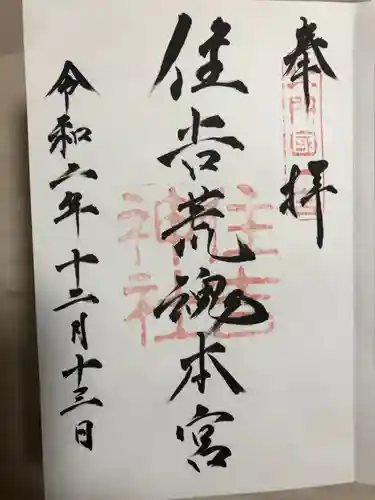 奉拝
住吉荒魂本宮
令和六年十二月十三日
住吉
神社